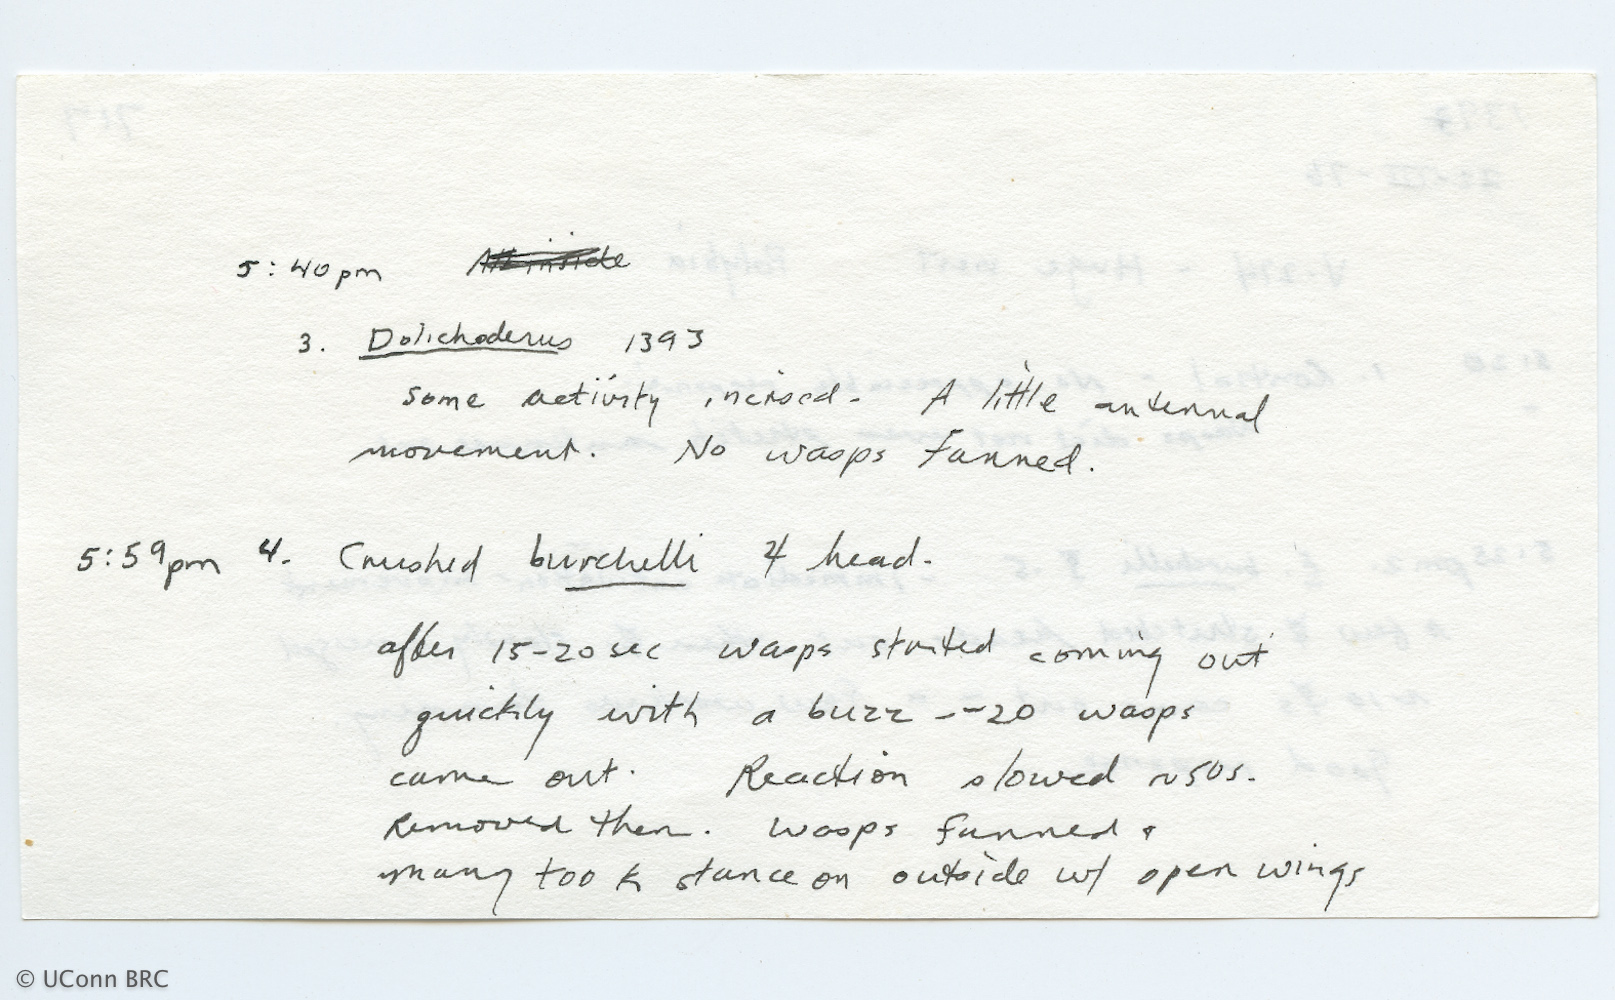 5:40pm
3. Dolichoderus 1393
some activity incised. A little antennal
movement. No wasps fanned.
5:59pm 4. Crushed burchelli head.
after 15-20 sec wasps started coming out
quickly with a buzz -~20 wasps
came out. Reaction slowed ~50s.
Removed then. Wasps fanned &
many took stance on outside w/ open wings
© UConn BRC